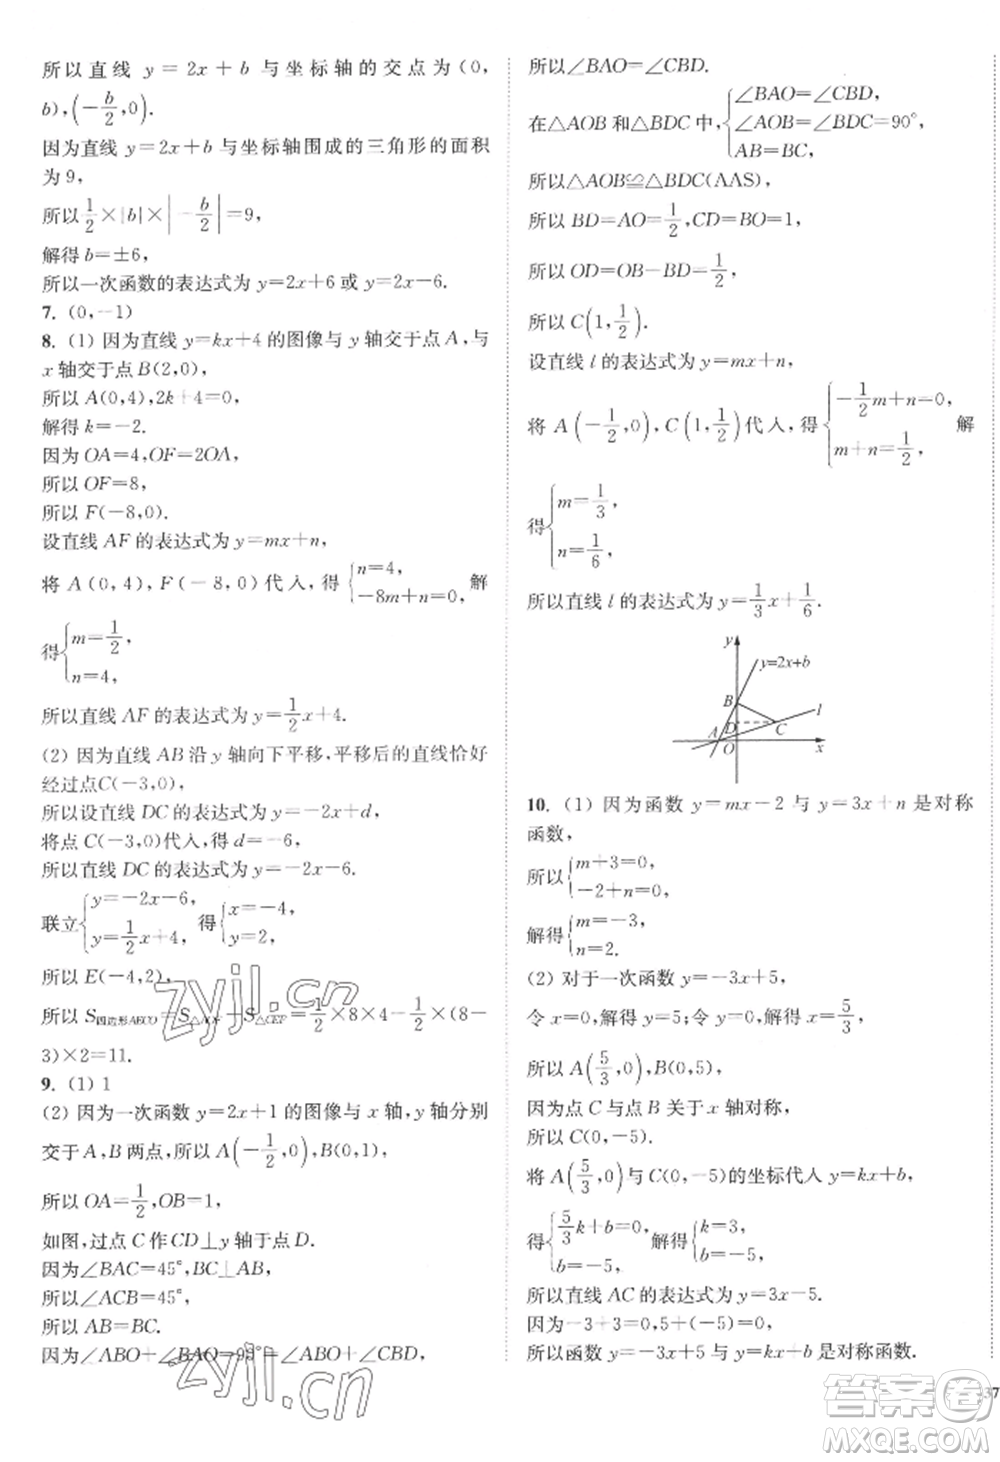 所以直线 y=2x+b 与坐标轴的交点为(0,
b),(-b/2,0).
因为直线 y=2x+b 与坐标轴围成的三角形的面积
为 9,
所以 1/2×|b|×|-b/2|=9,
解得 b=±6,
所以一次函数的表达式为 y=2x+6 或 y=2x-6.
7. (0,-1)
8. (1) 因为直线 y=kx+4 的图像与 y 轴交于点 A,与
x 轴交于点 B(2,0),
所以 A(0,4),2k+4=0,
解得 k=-2.
因为 OA=4,OF=2OA,
所以 OF=8,
所以 F(-8,0).
设直线 AF 的表达式为 y=mx+n,
将 A(0,4),F(-8,0)代入,得 {n=4, -8m+n=0, 解
得 {m=1/2, n=4,
所以直线 AF 的表达式为 y=1/2x+4.
(2) 因为直线 AB 沿 y 轴向下平移,平移后的直线恰好
经过点C(-3,0),
所以设直线 DC 的表达式为 y=-2x+d,
将点 C(-3,0)代入,得 d=-6,
所以直线 DC 的表达式为 y=-2x-6.
联立 {y=-2x-6, y=1/2x+4, 得 {x=-4, y=2,
所以 E(-4,2),
所以 S四边形AECO=S△AOF-S△CEF=1/2×8×4-1/2×(8-
3)×2=11.
9. (1) 1
(2) 因为一次函数 y=2x+1 的图像与 x 轴,y 轴分别
交于 A,B 两点,所以 A(-1/2,0),B(0,1),
所以 OA=1/2,OB=1,
如图,过点 C 作 CD⊥y 轴于点 D.
因为∠BAC=45°,BC⊥AB,
所以∠ACB=45°,
所以 AB=BC.
因为∠ABO+∠BAO=90°=∠ABO+∠CBD,
所以∠BAO=∠CBD.
在△AOB 和△BDC 中, {∠BAO=∠CBD, ∠AOB=∠BDC=90°, AB=BC,
所以△AOB≌△BDC(AAS),
所以 BD=AO=1/2,CD=BO=1,
所以 OD=OB-BD=1/2,
所以 C(1,1/2).
设直线 l 的表达式为 y=mx+n,
将 A(-1/2,0),C(1,1/2)代入,得 {-1/2m+n=0, m+n=1/2, 解
得 {m=1/3, n=1/6,
所以直线 l 的表达式为 y=1/3x+1/6.
y
y=2x+b
B
D
l
A
C
O
x
10. (1) 因为函数 y=mx-2 与 y=3x+n 是对称
函数,
所以 {m+3=0, -2+n=0,
解得 {m=-3, n=2.
(2) 对于一次函数 y=-3x+5,
令 x=0,解得 y=5;令 y=0,解得 x=5/3,
所以 A(5/3,0),B(0,5),
因为点 C 与点 B 关于 x 轴对称,
所以 C(0,-5).
将 A(5/3,0)与 C(0,-5)的坐标代入 y=kx+b,
得 {5/3k+b=0, b=-5, 解得 {k=3, b=-5.
所以直线 AC 的表达式为 y=3x-5.
因为-3+3=0,5+(-5)=0,
所以函数 y=-3x+5 与 y=kx+b 是对称函数.
37
zyjl.cn
zyjl.cn
答案卷
MXQE.COM